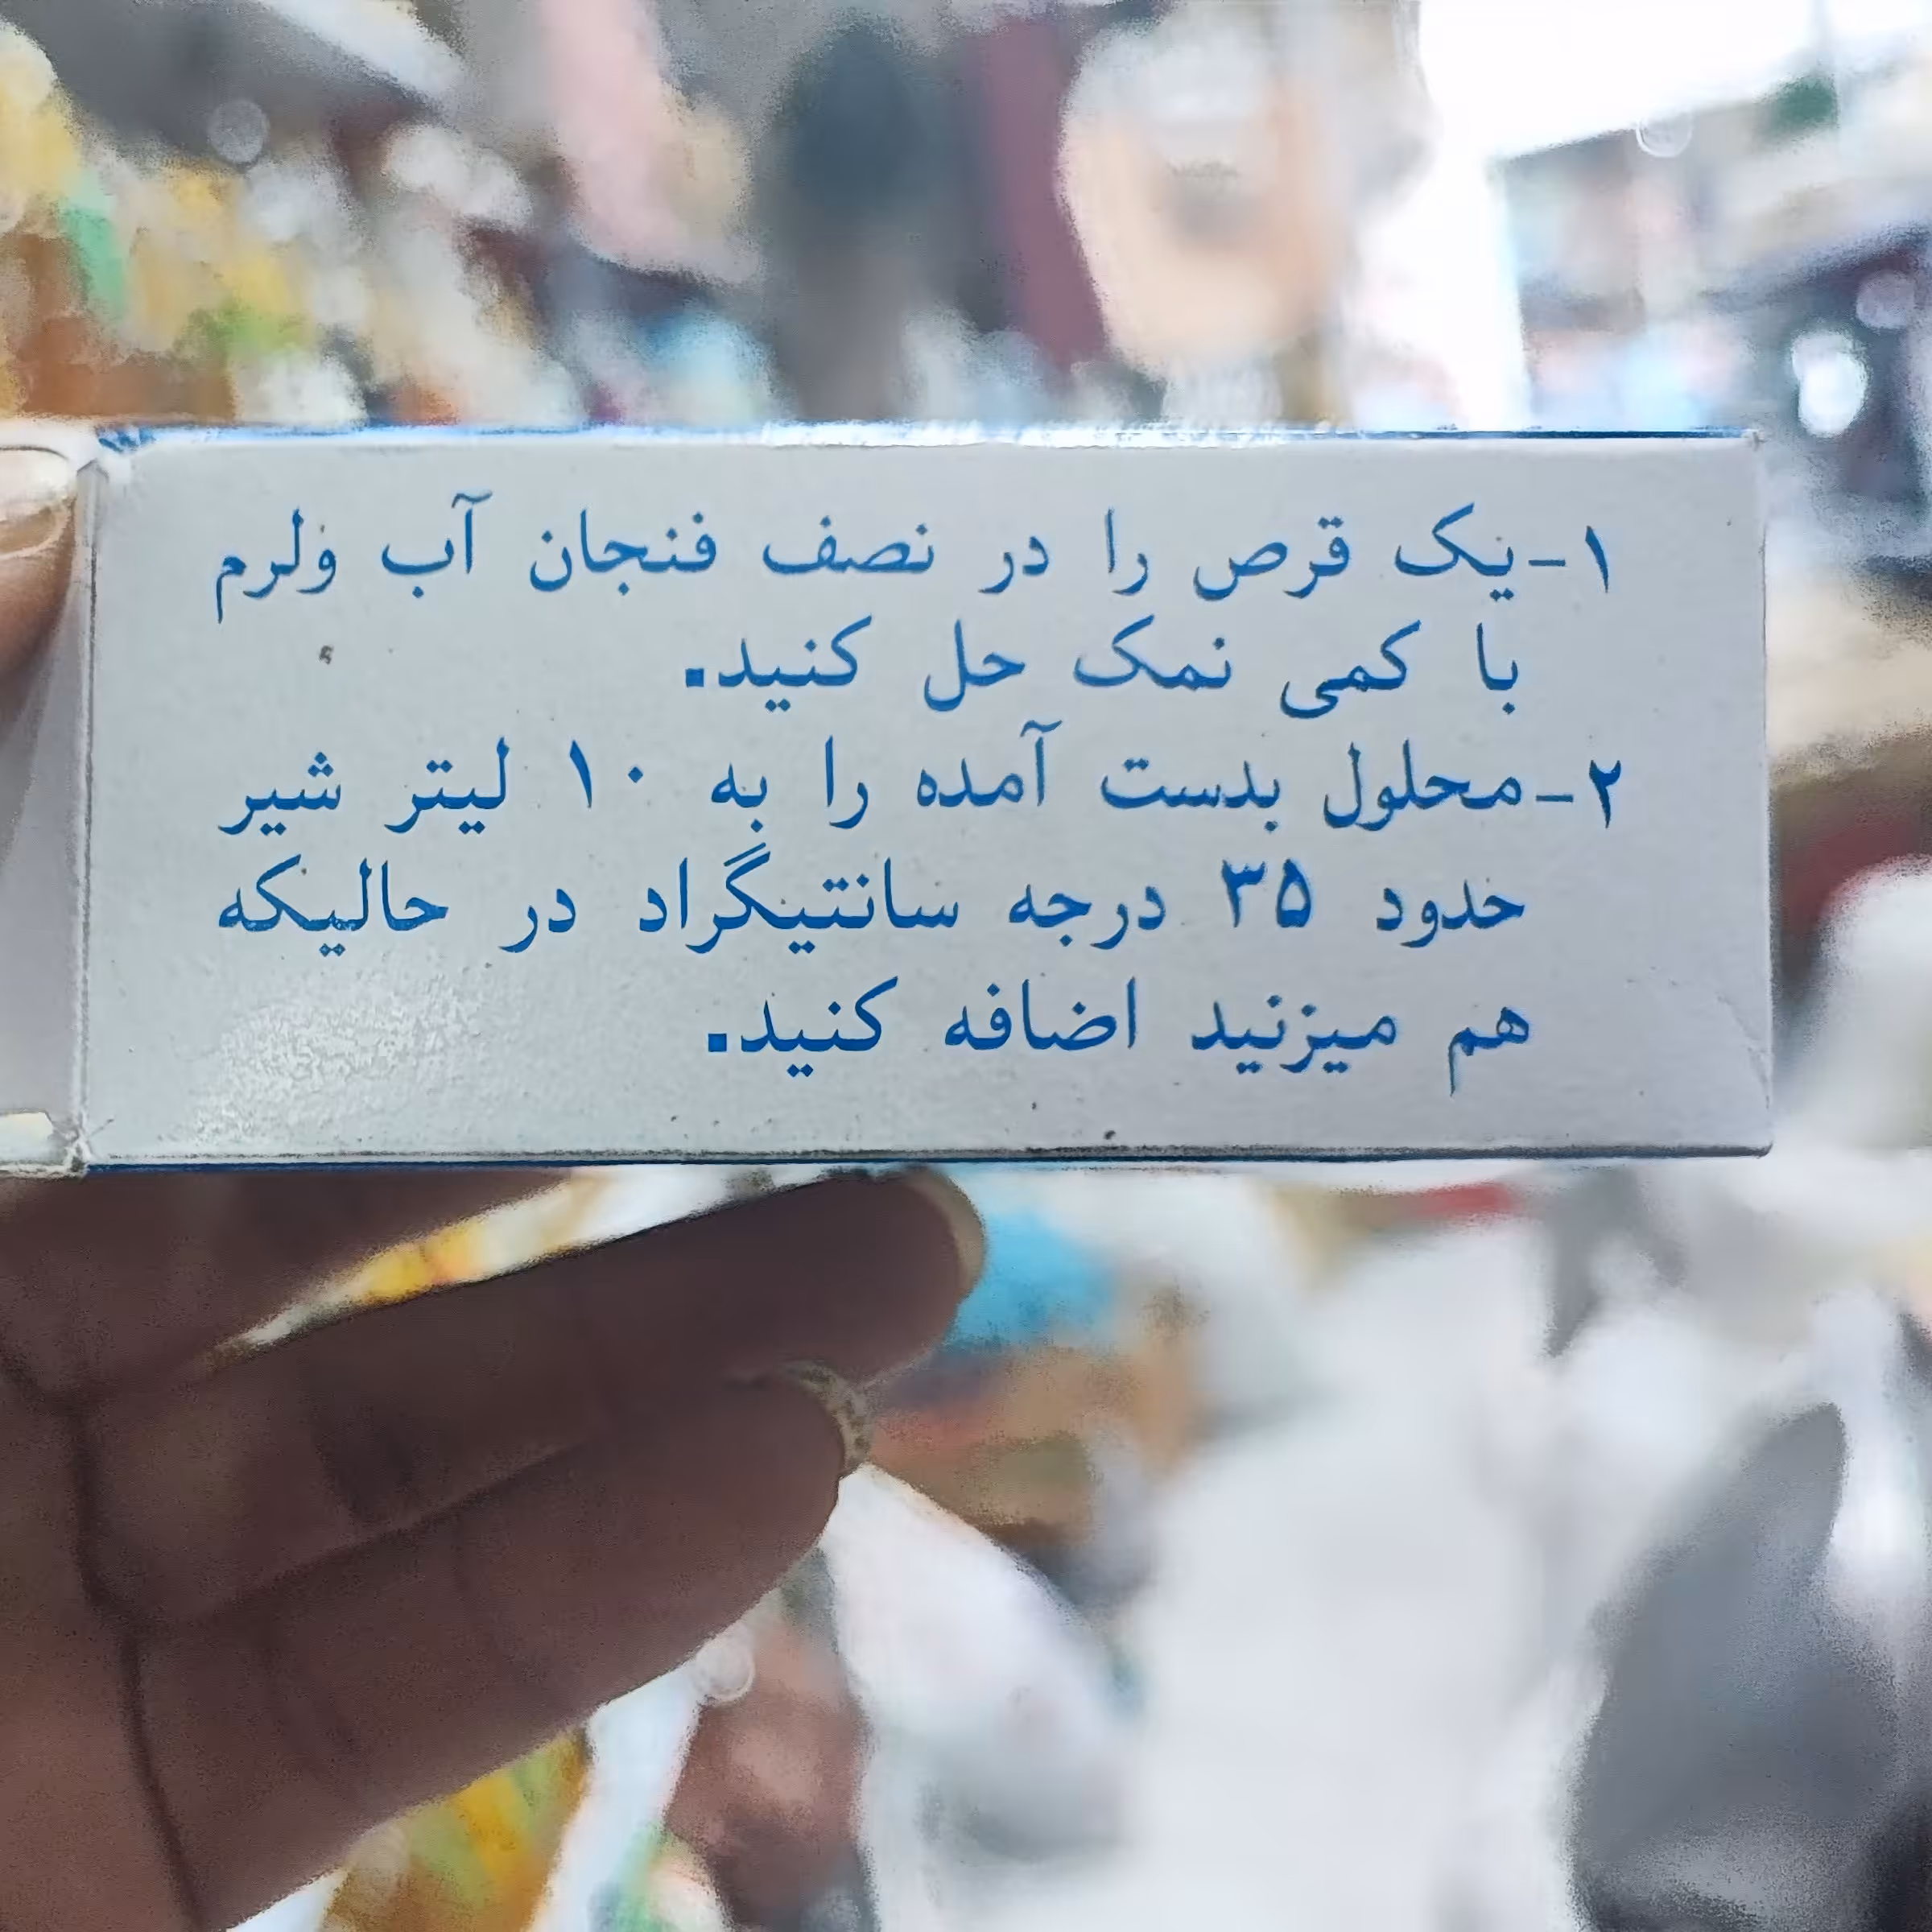 ۱-یک قرص را در نصف فنجان آب ولرم
با کمی نمک حل کنید.
۲-محلول بدست آمده را به ۱۰ لیتر شیر
حدود ۳۵ درجه سانتیگراد در حالیکه
هم میزنید اضافه کنید.